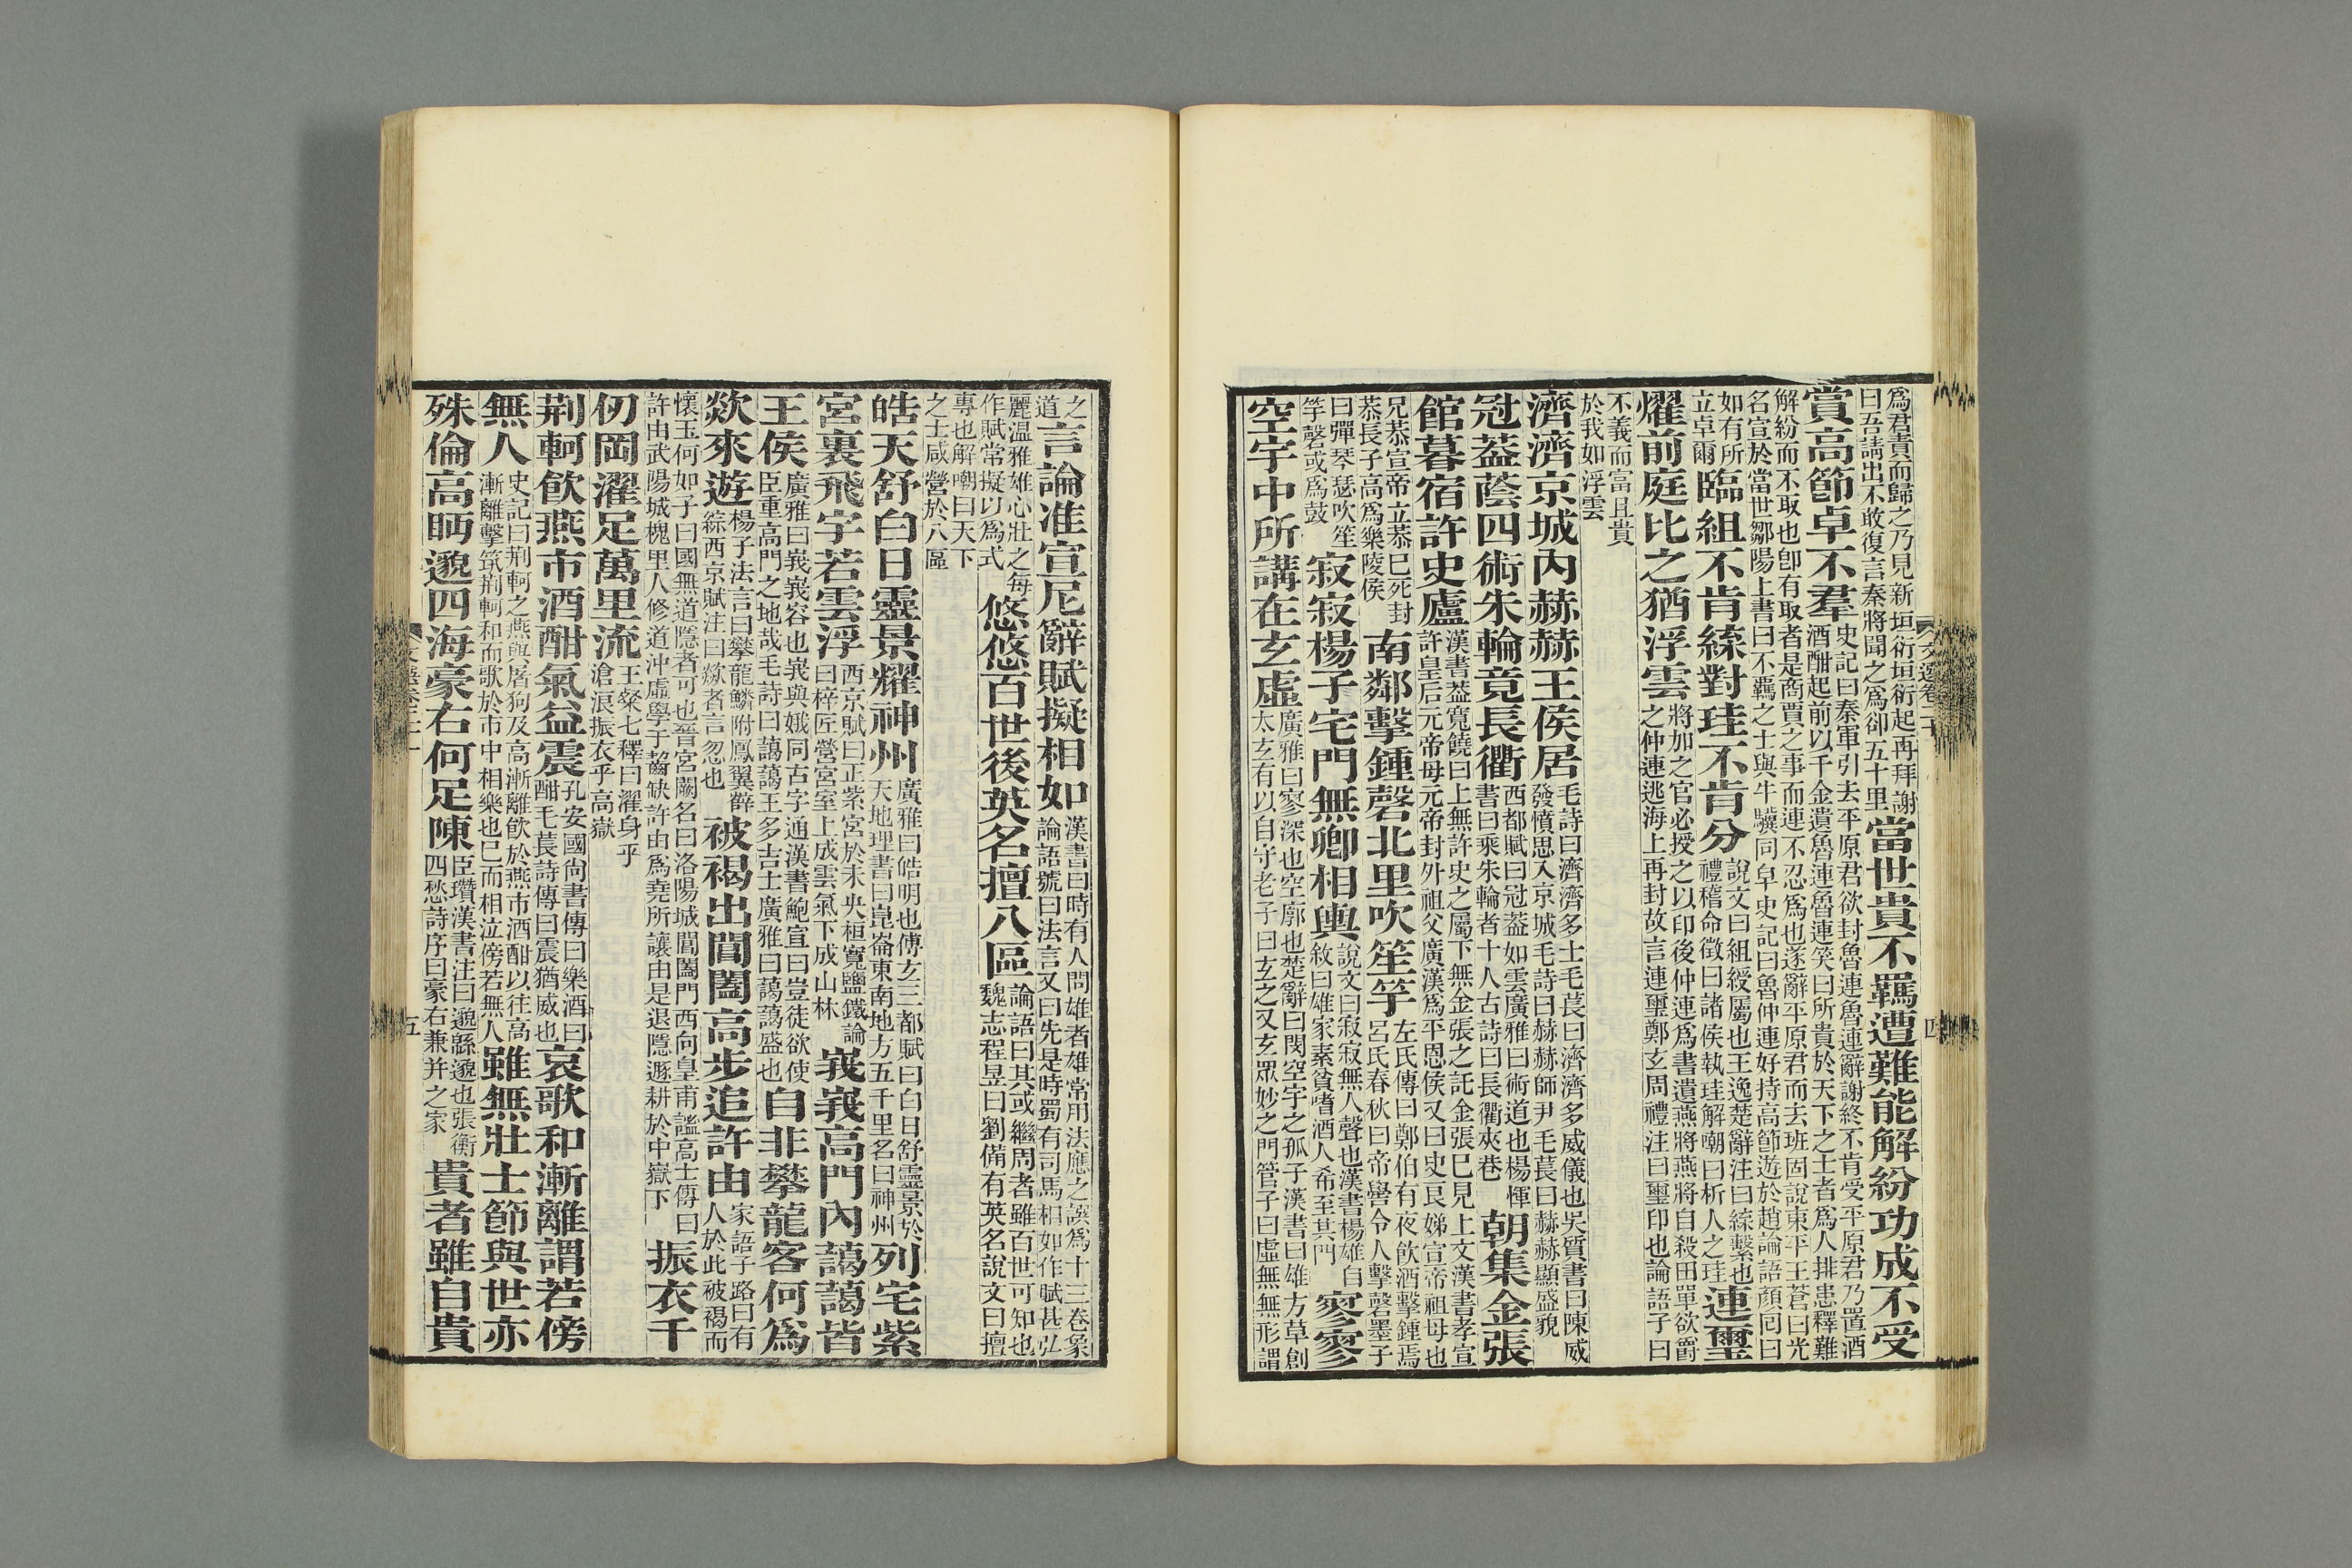 為君責而歸之乃見新垣衍垣衍起再拜謝曰吾請出不敢復言秦將聞之為卻五十里當世貴不羈遭難能解紛功成不受
賞高節卓不羣史記曰秦軍引去平原君欲封魯連魯連辭謝終不肯受平原君乃置酒酒酣起前以千金遺魯連魯連笑曰所貴於天下之士者為人排患釋難
解紛而不取也卽有取者是商賈之事而連不忍為也遂辭平原君而去班固說東平王蒼曰光名宣於當世鄒陽上書曰不羈之士與牛驥同皁史記曰魯仲連好持高節遊於趙論語顏囘曰
如有所立卓爾臨組不肯緤對珪不肯分說文曰組綬屬也王逸楚辭注曰緤繫也禮稽命徵曰諸侯執珪解嘲曰析人之珪連璽
燿前庭比之猶浮雲將加之官必授之以印後仲連為書遺燕將燕將自殺田單欲爵之仲連逃海上再封故言連璽鄭玄周禮注曰璽印也論語子曰
不義而富且貴於我如浮雲
濟濟京城內赫赫王侯居毛詩曰濟濟多士毛萇曰濟濟多威儀也吳質書曰陳威發憤思入京城毛詩曰赫赫師尹毛萇曰赫赫顯盛貌
冠葢蔭四術朱輪竟長衢西都賦曰冠葢如雲廣雅曰術道也楊惲書曰乘朱輪者十人古詩曰長衢夾巷朝集金張
館暮宿許史廬漢書葢寬饒曰上無許史之屬下無金張之託金張已見上文漢書孝宣許皇后元帝母元帝封外祖父廣漢為平恩侯又曰史良娣宣帝祖母也
兄恭宣帝立恭已死封恭長子高為樂陵侯南鄰擊鍾磬北里吹笙竽左氏傳曰鄭伯有夜飲酒擊鍾焉呂氏春秋曰帝嚳令人擊磬墨子
曰彈琴瑟吹笙竽磬或為鼓寂寂楊子宅門無卿相輿說文曰寂寂無人聲也漢書楊雄自敘曰雄家素貧嗜酒人希至其門寥寥
空宇中所講在玄虛廣雅曰寥深也空廓也楚辭曰閔空宇之孤子漢書曰雄方草創太玄有以自守老子曰玄之又玄眾妙之門管子曰虛無無形謂
之道言論准宣尼辭賦擬相如漢書曰時有人問雄者雄常用法應之譔為十三卷象論語號曰法言又曰先是時蜀有司馬相如作賦甚弘
麗温雅雄心壯之每作賦常擬以為式悠悠百世後英名擅八區論語曰其或繼周者雖百世可知也魏志程昱曰劉備有英名說文曰擅
專也解嘲曰天下之士咸營於八區
皓天舒白日靈景耀神州廣雅曰皓明也傅玄三都賦曰白日舒靈景於天地理書曰崑崙東南地方五千里名曰神州列宅紫
宮裏飛宇若雲浮西京賦曰正紫宮於未央桓寬鹽鐵論曰梓匠營宮室上成雲氣下成山林峩峩高門內藹藹皆
王侯廣雅曰峩峩容也峩與娥同古字通漢書鮑宣曰豈徒欲使臣重高門之地哉毛詩曰藹藹王多吉士廣雅曰藹藹盛也自非攀龍客何為
歘來遊楊子法言曰攀龍鱗附鳳翼薛綜西京賦注曰歘者言忽也被褐出閶闔高步追許由家語子路曰有人於此被褐而
懷玉何如子曰國無道隱者可也晉宮闕名曰洛陽城閶闔門西向皇甫謐高士傳曰許由武陽城槐里人修道沖虛學于齧缺許由為堯所讓由是退隱遯耕於中嶽下振衣千
仞岡濯足萬里流王粲七釋曰濯身乎滄浪振衣乎高嶽
荆軻飮燕市酒酣氣益震孔安國尚書傳曰樂酒曰酣毛萇詩傳曰震猶威也哀歌和漸離謂若傍
無人史記曰荆軻之燕與屠狗及高漸離飮於燕市酒酣以往高漸離擊筑荆軻和而歌於市中相樂也已而相泣傍若無人雖無壯士節與世亦
殊倫高眄邈四海豪右何足陳臣瓚漢書注曰邈緜邈也張衡四愁詩序曰豪右兼并之家貴者雖自貴
五